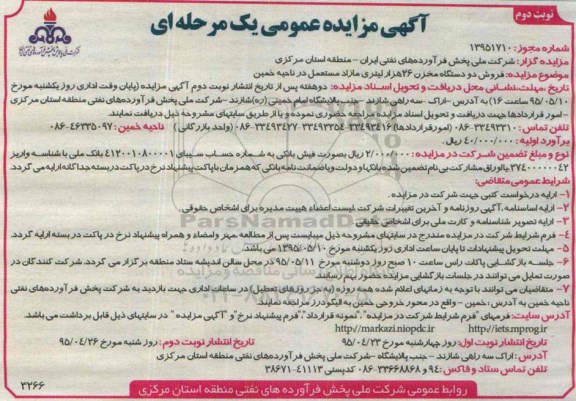 نوبت دوم
آگهی مزایده عمومی یک مرحله ای
شرکت ملی پخش فرآورده‌های نفتی ایران
شماره مجوز: ۱۳۹۵۱۷۱۰
مزایده گزار: شرکت ملی پخش فرآورده‌های نفتی ایران - منطقه استان مرکزی
موضوع مزایده: فروش دو دستگاه مخزن ۲۶هزار لیتری مازاد مستعمل در ناحیه خمین
تاریخ ،مهلت،نشانی محل دریافت و تحویل اسناد مزایده: دوهفته پس از تاریخ انتشار نوبت دوم آگهی مزایده (پایان وقت اداری روز یکشنبه مورخ
۹۵/۰۵/۱۰ ساعت ۱۶) به آدرس -اراک -سه راهی شازند - جنب پالایشگاه امام خمینی (ره)شازند -شرکت ملی پخش فرآورده‌های نفتی استان مرکزی
- امور قراردادها جهت دریافت و تحویل اسناد مزایده مراجعه حضوری نموده و یا از طریق سایتهای مشروحه ذیل دریافت نمایند.
تلفن تماس: ۳۳۴۹۳۳۱۰-۰۸۶ (امورقراردادها) ۳۳۴۹۳۴۱۶ ۳۳۴۹۳۳۵۴ ۳۳۴۹۳۴۲۷-۰۸۶ (واحد بازرگانی) ناحیه خمین: ۴۶۳۳۵۰۹۷-۰۸۶
برآورد اولیه: ۴۰/۰۰۰/۰۰۰ ریال.
نوع و مبلغ تضمین شرکت در مزایده: ۲/۰۰۰/۰۰۰ ریال بصورت فیش بانکی به شماره حساب سیبای ۴۱۲۰۰۱۰۸۰۰۰۱ بانک ملی با شناسه واریز
۳۷۴۰۰۰۰۰۰۴۲ یااوراق مشارکت بی نام تضمین شده بانکها و دولت ویاضمانت نامه بانکی که همزمان باپاکت پیشنهاد نرخ درپاکت دربسته جداگانه ارایه می گردد.
شرایط عمومی متقاضی:
۱- ارایه درخواست کتبی جهت شرکت در مزایده.
۲- ارایه اساسنامه ،آگهی روزنامه و آخرین تغییرات شرکت لیست اعضاء هیبت مدیره برای اشخاص حقوقی.
۳- ارایه تصویر شناسنامه و کارت ملی برای اشخاص حقیقی
۴- فرم شرایط شرکت در مزایده مندرج در سایتهای مشروحه ذیل میبایست پس از مطالعه مهر و امضاء و همراه پیشنهاد نرخ در پاکت در بسته ارایه گردد.
۵- مهلت تحویل پیشنهادات تا پایان ساعت اداری روز یکشنبه مورخ ۱۳۹۵/۰۵/۱۰ می باشد.
۶- جلسه بازگشایی پاکات راس ساعت ۱۰ صبح روز دوشنبه مورخ ۹۵/۰۵/۱۱ در محل سالن اندیشه ستاد منطقه برگزار می گردد. شرکت کنندگان در
صورت تمایل می توانند در جلسات بازگشایی مزایده حضور بهم رسانند
۷- متقاضیان می توانند با توجه به زمانهای اعلام شده همه روزه (به جز روزهای تعطیل) در ساعات اداری جهت بازدید به شرکت پخش فرآورده‌های نفتی
ناحیه خمین به آدرس :خمین - واقع در محور خروجی خمین به الیگودرز مراجعه نمایند
آدرس سایت: فرمهای "فرم شرایط شرکت در مزایده"،"نمونه قرارداد"،"فرم پیشنهاد نرخ"و"آگهی مزایده" در سایتهای ذیل قابل برداشت می باشد.
http//iets.mprog.ir http//markazi.niopdc.ir
تاریخ انتشار نوبت اول: روز چهارشنبه مورخ ۹۵/۰۴/۲۳ تاریخ انتشار نوبت دوم: روز شنبه مورخ ۹۵/۰۴/۲۶
آدرس: اراک سه راهی شازند - جنب پالایشگاه - شرکت ملی پخش فرآورده‌های نفتی منطقه استان مرکزی
تلفن تماس ستاد و فاکس: ۹۴ و ۳۳۶۶۸۸۶۸-۰۸۶ کدپستی ۴۱۱۱۳-۳۸۶۷۱
۳۲۶۶
روابط عمومی شرکت ملی پخش فرآورده های نفتی منطقه استان مرکزی
ParsNamadData